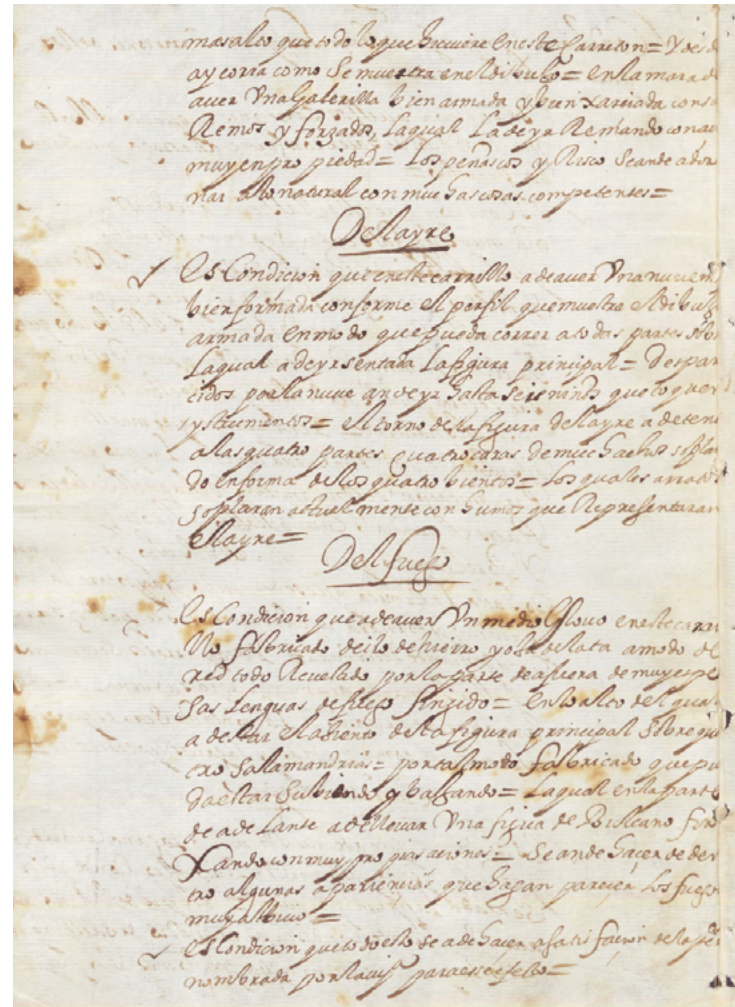 mas alto que todo lo que huviere en este Carreton = Y desde
ay corra como se muestra en el dibuxo = en la mar a de
aver Vna galerilla bien armada y bien xarciada con su
Remos y forzados, la qual la de yr Remando con au
muy en pro piedad = los peñascos y Risco se an de ador
nar a lo natural con muchas cosas competentes =
Del ayre
Es Condicion que en este carrillo a de aver Vna nuve m
bien formada conforme el perfil que muestra el dibuxo
armada en modo que pueda correr a todas partes sobre
la qual a de yr sentada la figura principal = Despar
cidos por la nuve an de yr hasta seis niños que toquen
ystrumentos = el torno de la figura del ayre a de tene
a las quatro partes quatro caras de muchachos soplan
do en forma de los quatro bientos = los quales a rratos
soplaran actual mente con humos que Representaran
el ayre =
Del fuego
Es Condicion que a de aver Vn medio Globo en este carri
llo fabricado de ilo de hierro y oja de lata a modo de
red todo Revestido por la parte de afuera de muy espe
sas lenguas de fuego finxido = en lo alto del qual
a de estar el asiento de la figura principal sobre qua
tro salamandrias = por tal modo fabricado que pu
da estar subiendo y baxando = la qual en la parte
de adelante a de llevar Vna figura de Bulcano for
Xando con muy propias aciones = se an de hacer de den
tro algunas apariencias que hagan parecer los fuegos
muy al bivo =
Es Condicion que todo esto se a de hacer a satisfacion de la per
nombrada por la ciu para este efecto =